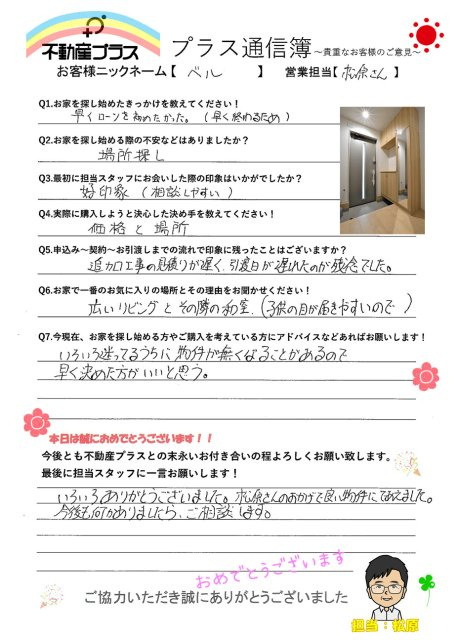 不動産プラス
プラス通信簿~貴重なお客様のご意見~
お客様ニックネーム【 ベル 】 営業担当【松原さん】
Q1.お家を探し始めたきっかけを教えてください!
早くローンを始めたかった。(早く終わるため)
Q2.お家を探し始める際の不安などはありましたか?
場所探し
Q3.最初に担当スタッフにお会いした際の印象はいかがでしたか?
好印象(相談しやすい)
Q4.実際に購入しようと決心した決め手を教えてください!
価格と場所
Q5.申込み~契約~お引渡しまでの流れで印象に残ったことはございますか?
追加工事の見積りが遅く、引渡日が遅れたのが残念でした。
Q6.お家で一番のお気に入りの場所とその理由をお聞かせください!
広いリビングとその隣の和室、(子供の目が届きやすいので)
Q7.今現在、お家を探し始める方やご購入を考えている方にアドバイスなどあればお願いします!
いろいろ迷ってるうちに物件が無くなることがあるので
早く決めた方がいいと思う。
本日は誠におめでとうございます!!
今後とも不動産プラスとの末永いお付き合いの程よろしくお願い致します。
最後に担当スタッフに一言お願いします!
いろいろありがとうございました。松原さんのおかげで良い物件にであえました。
今後も何かありましたら、ご相談します。
おめでとうございます
ご協力いただき誠にありがとうございました
担当:松原